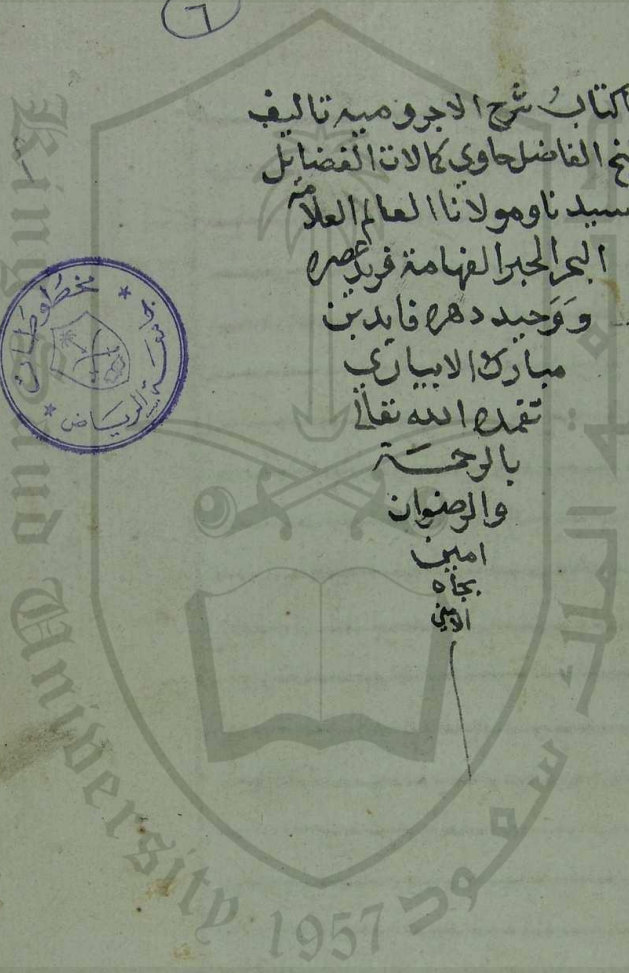 ٦
كتاب شرح الاجروميه تاليف
الفاضل حاوي كمالات الفضايل
سيدنا ومولانا العالم العلامة
البحر الحبر الفهامة فريد عصره
ووحيد دهره فايد بن
مبارك الابياري
تغمده الله تعالى
بالرحمة
والرضوان
امين
بجاه
الامين
مخطوطات
جامعة الرياض
King Saud University 1957
جامعة الملك سعود